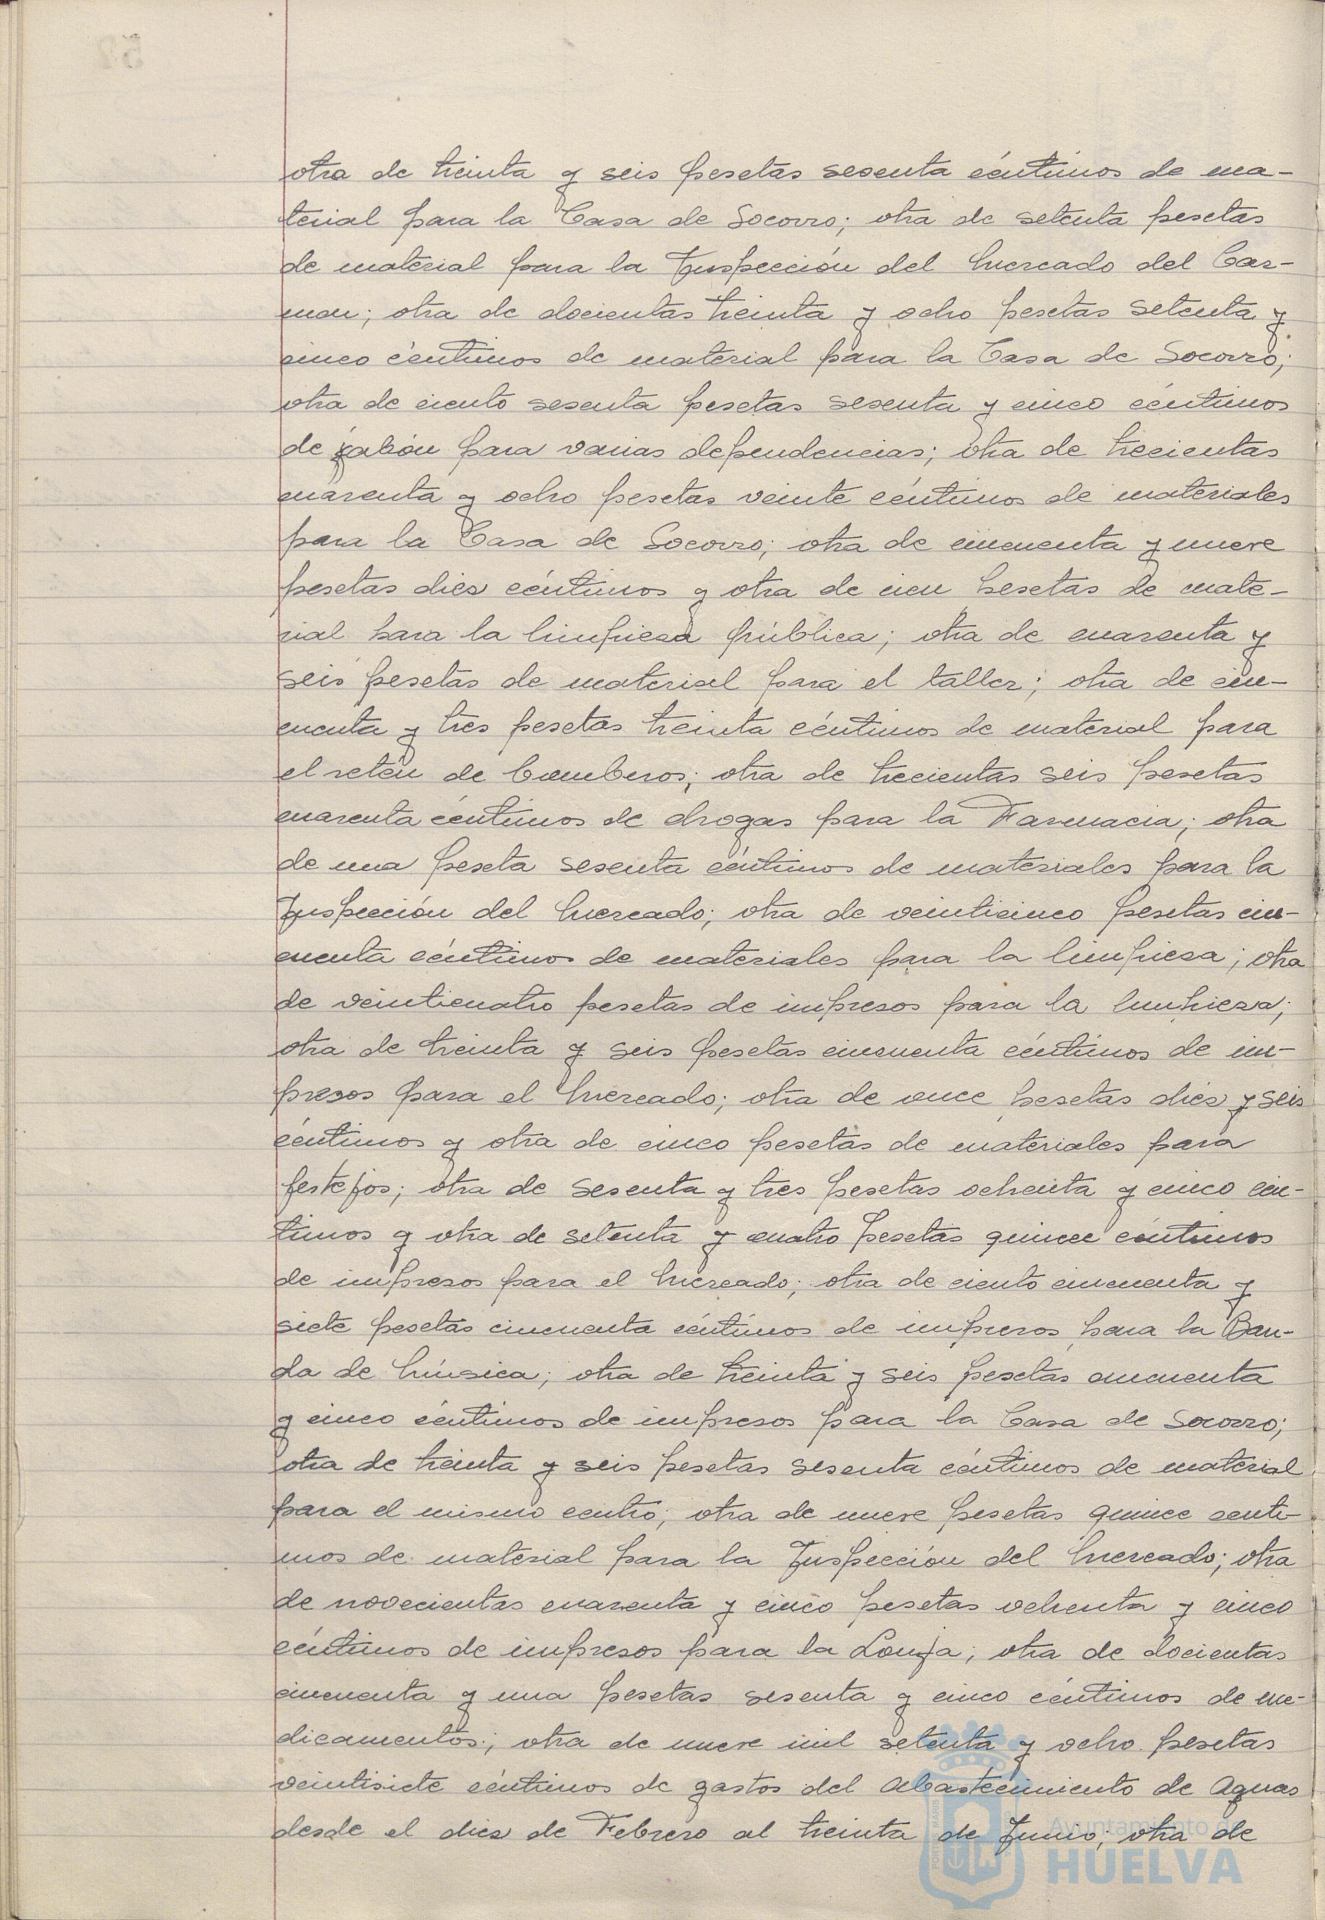 otra de treinta y seis pesetas sesenta céntimos de ma-
terial para la Casa de Socorro; otra de setenta pesetas
de material para la Inspección del Mercado del Car-
men; otra de docientas treinta y ocho pesetas setenta y
cinco céntimos de material para la Casa de Socorro;
otra de ciento sesenta pesetas sesenta y cinco céntimos
de jabón para varias dependencias; otra de trecientas
cuarenta y ocho pesetas veinte céntimos de materiales
para la Casa de Socorro; otra de cincuenta y nueve
pesetas diez céntimos y otra de cien pesetas de mate-
rial para la limpieza pública; otra de cuarenta y
seis pesetas de material para el taller; otra de cin-
cuenta y tres pesetas treinta céntimos de material para
el retén de bomberos; otra de trecientas seis pesetas
cuarenta céntimos de drogas para la Farmacia; otra
de una peseta sesenta céntimos de materiales para la
Inspección del Mercado; otra de veinticinco pesetas cin-
cuenta céntimos de materiales para la limpieza; otra
de veinticuatro pesetas de impresos para la limpieza;
otra de treinta y seis pesetas cincuenta céntimos de im-
presos para el Mercado; otra de once pesetas diez y seis
céntimos y otra de cinco pesetas de materiales para
festejos; otra de sesenta y tres pesetas ochenta y cinco cén-
timos y otra de setenta y cuatro pesetas quince céntimos
de impresos para el Mercado; otra de ciento cincuenta y
siete pesetas cincuenta céntimos de impresos para la Ban-
da de Música; otra de treinta y seis pesetas cincuenta
y cinco céntimos de impresos para la Casa de Socorro;
otra de treinta y seis pesetas sesenta céntimos de material
para el mismo centro; otra de nueve pesetas quince centi-
mos de material para la Inspección del Mercado; otra
de novecientas cuarenta y cinco pesetas ochenta y cinco
céntimos de impresos para la Lonja; otra de docientas
cincuenta y una pesetas sesenta y cinco céntimos de me-
dicamentos; otra de nueve mil setenta y ocho pesetas
veintisiete céntimos de gastos del abastecimiento de Aguas
desde el diez de Febrero al treinta de Junio; otra de
Ayuntamiento de
HUELVA